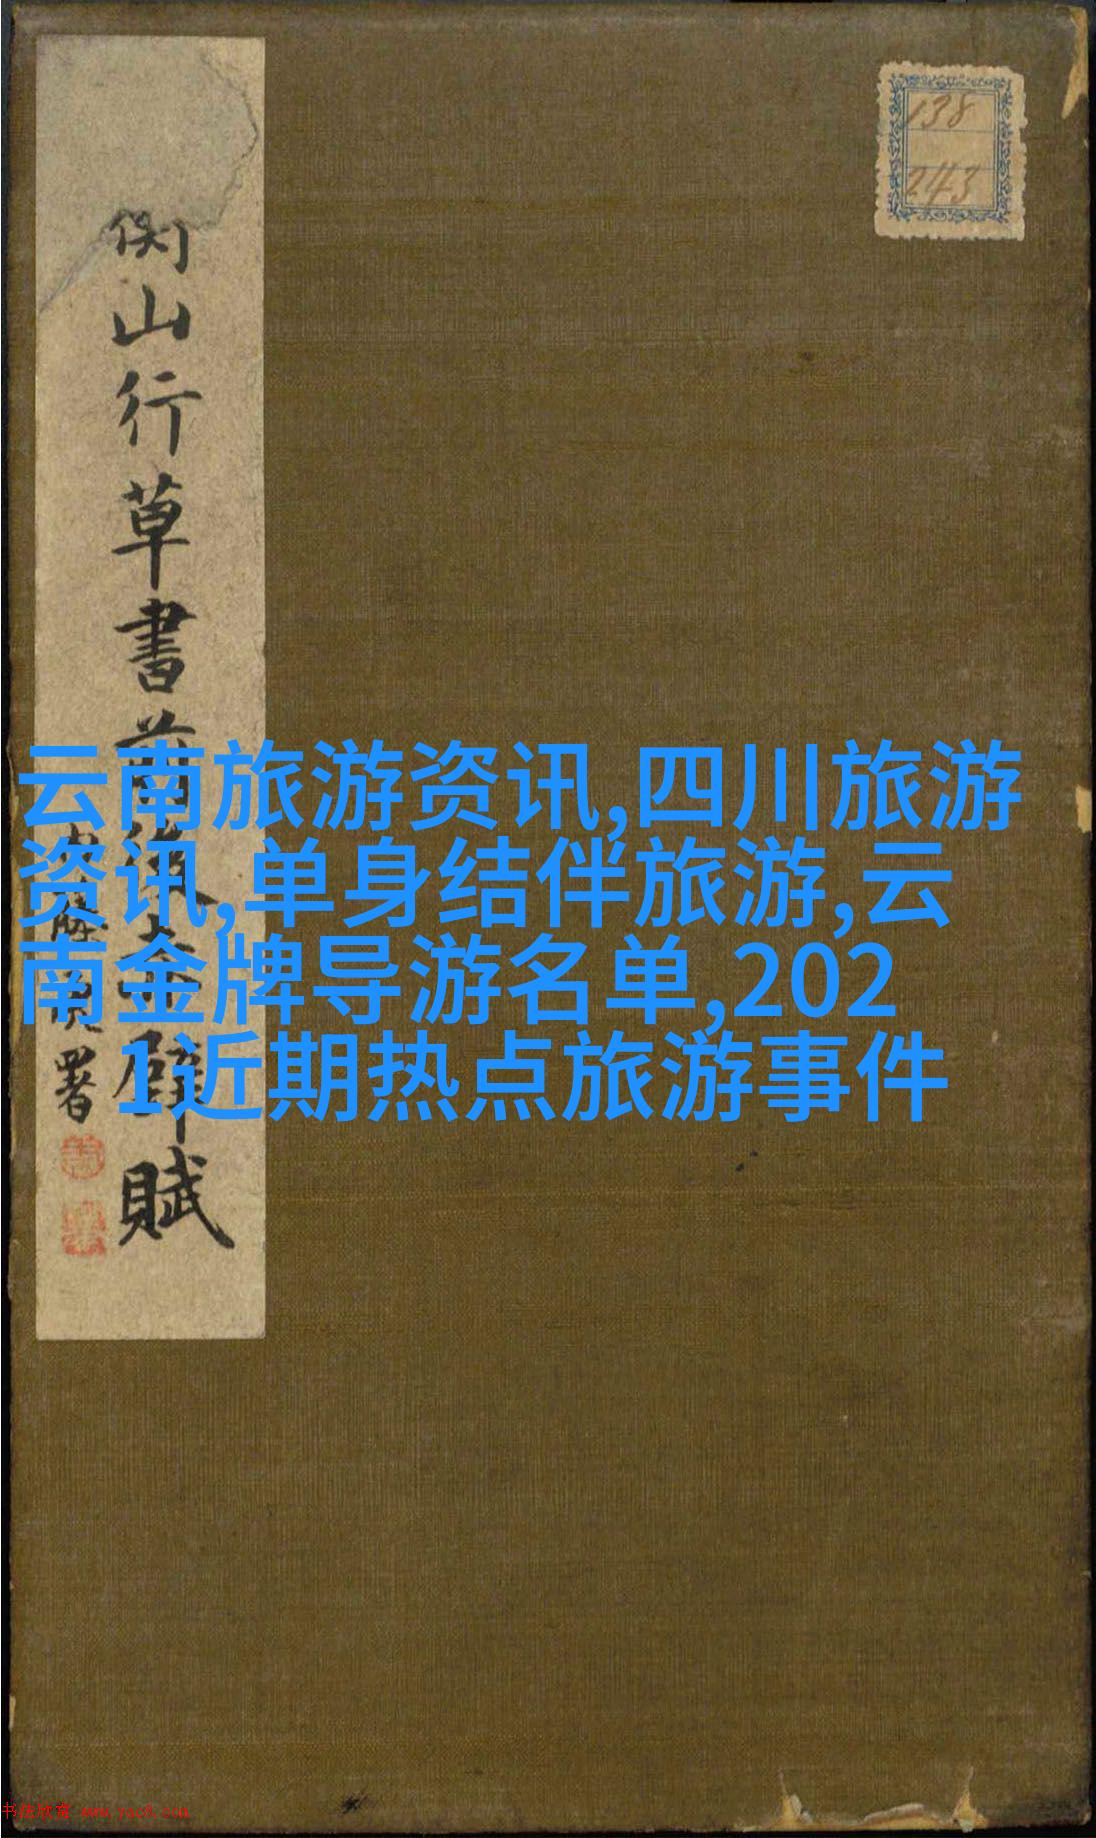 138
243
山行草書前後赤壁賦
署
云南旅游资讯,四川旅游
资讯,单身结伴旅游,云
南金牌导游名单,202
1近期热点旅游事件
书法欣赏 www.yac8.com